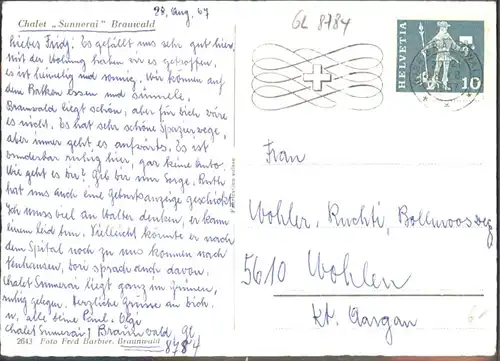 Chalet „Sunnerai" Braunwald
28. Aug. 67
GL 8784
HELVETIA
10
Liebes Fridy! Es gefällt uns sehr gut hier,
mit der Wohnung haben wir es getroffen,
es ist heimelig und sonnig. Wir können auf
dem Balkon essen und sünnele.
Braunwald liegt schön, aber für dich wäre
es nicht. Es hat sehr schöne Spazierwege,
aber immer geht es aufwärts. Es ist
wunderbar ruhig hier, gar keine Auto
Wie geht es dir? Gell bin um Sorge. Ruth
hat uns auch eine Geburtsanzeige geschickt
Ich muss viel an Walter denken, er kann
einem leid tun. Vielleicht könnte er nach
dem Spital noch zu uns kommen nach
davon.
Chalet Sunnerai liegt ganz im Grünen,
ruhig gelegen. Herzliche Grüsse an Dich,
u. alle Deine
Chalet Sunnerai / Braunwald, Gl.
8784
2643 Foto Fred Barbier, Braunwald
Frau
Wohler, Ruchti, Bollmoosweg
5610 Wohlen
Kt. Aargau